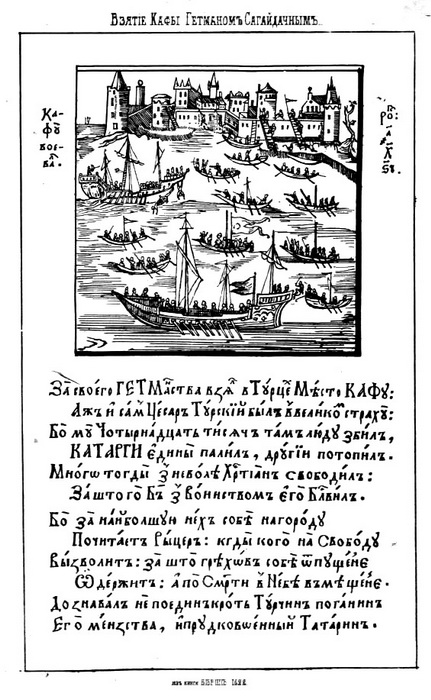 Взятіе Кафы Гетманомъ Сагайдачнымъ.
Ка-
фꙋ
вое-
ва.
Роⷦ҇:
а
Х҃
ЅІ.
За своего ГЕТМАⷩства взѧⷧ в Тꙋрцеⷯ Мѣсто КАФꙋ:
Ажъ и самⷨ Цесаръ Тꙋрскій былъ ꙋ великоⷨ страхꙋ:
Боⷨ мꙋ Чотырнадцать тисѧчъ тамъ людꙋ збилъ,
КАТАРГИ единыи палилъ, дрꙋгіи потопилъ.
Многѡ тогды зⷥ неволѣ Хрⷭтіанъ свободилъ:
За што гоⷨ Бг҃ъ зⷥ Воинствомъ его Блⷭвилъ.
Боⷨ за наиболшꙋю нехъ собѣ нагородꙋ
Почитаетъ Рыцеръ: кгды кого на Свободꙋ
Вызволитъ: за што грѣхѡвъ собѣ ѿпꙋщенїе
Ѡдержитъ: а по Смерти в Небѣ въмѣщенїе.
Дознавалъ не поединъкротъ Тꙋрчинъ поганинъ
Его мензства, и прꙋдковшенный Татаринъ.
изъ книги ВѢРШѢ 1622.